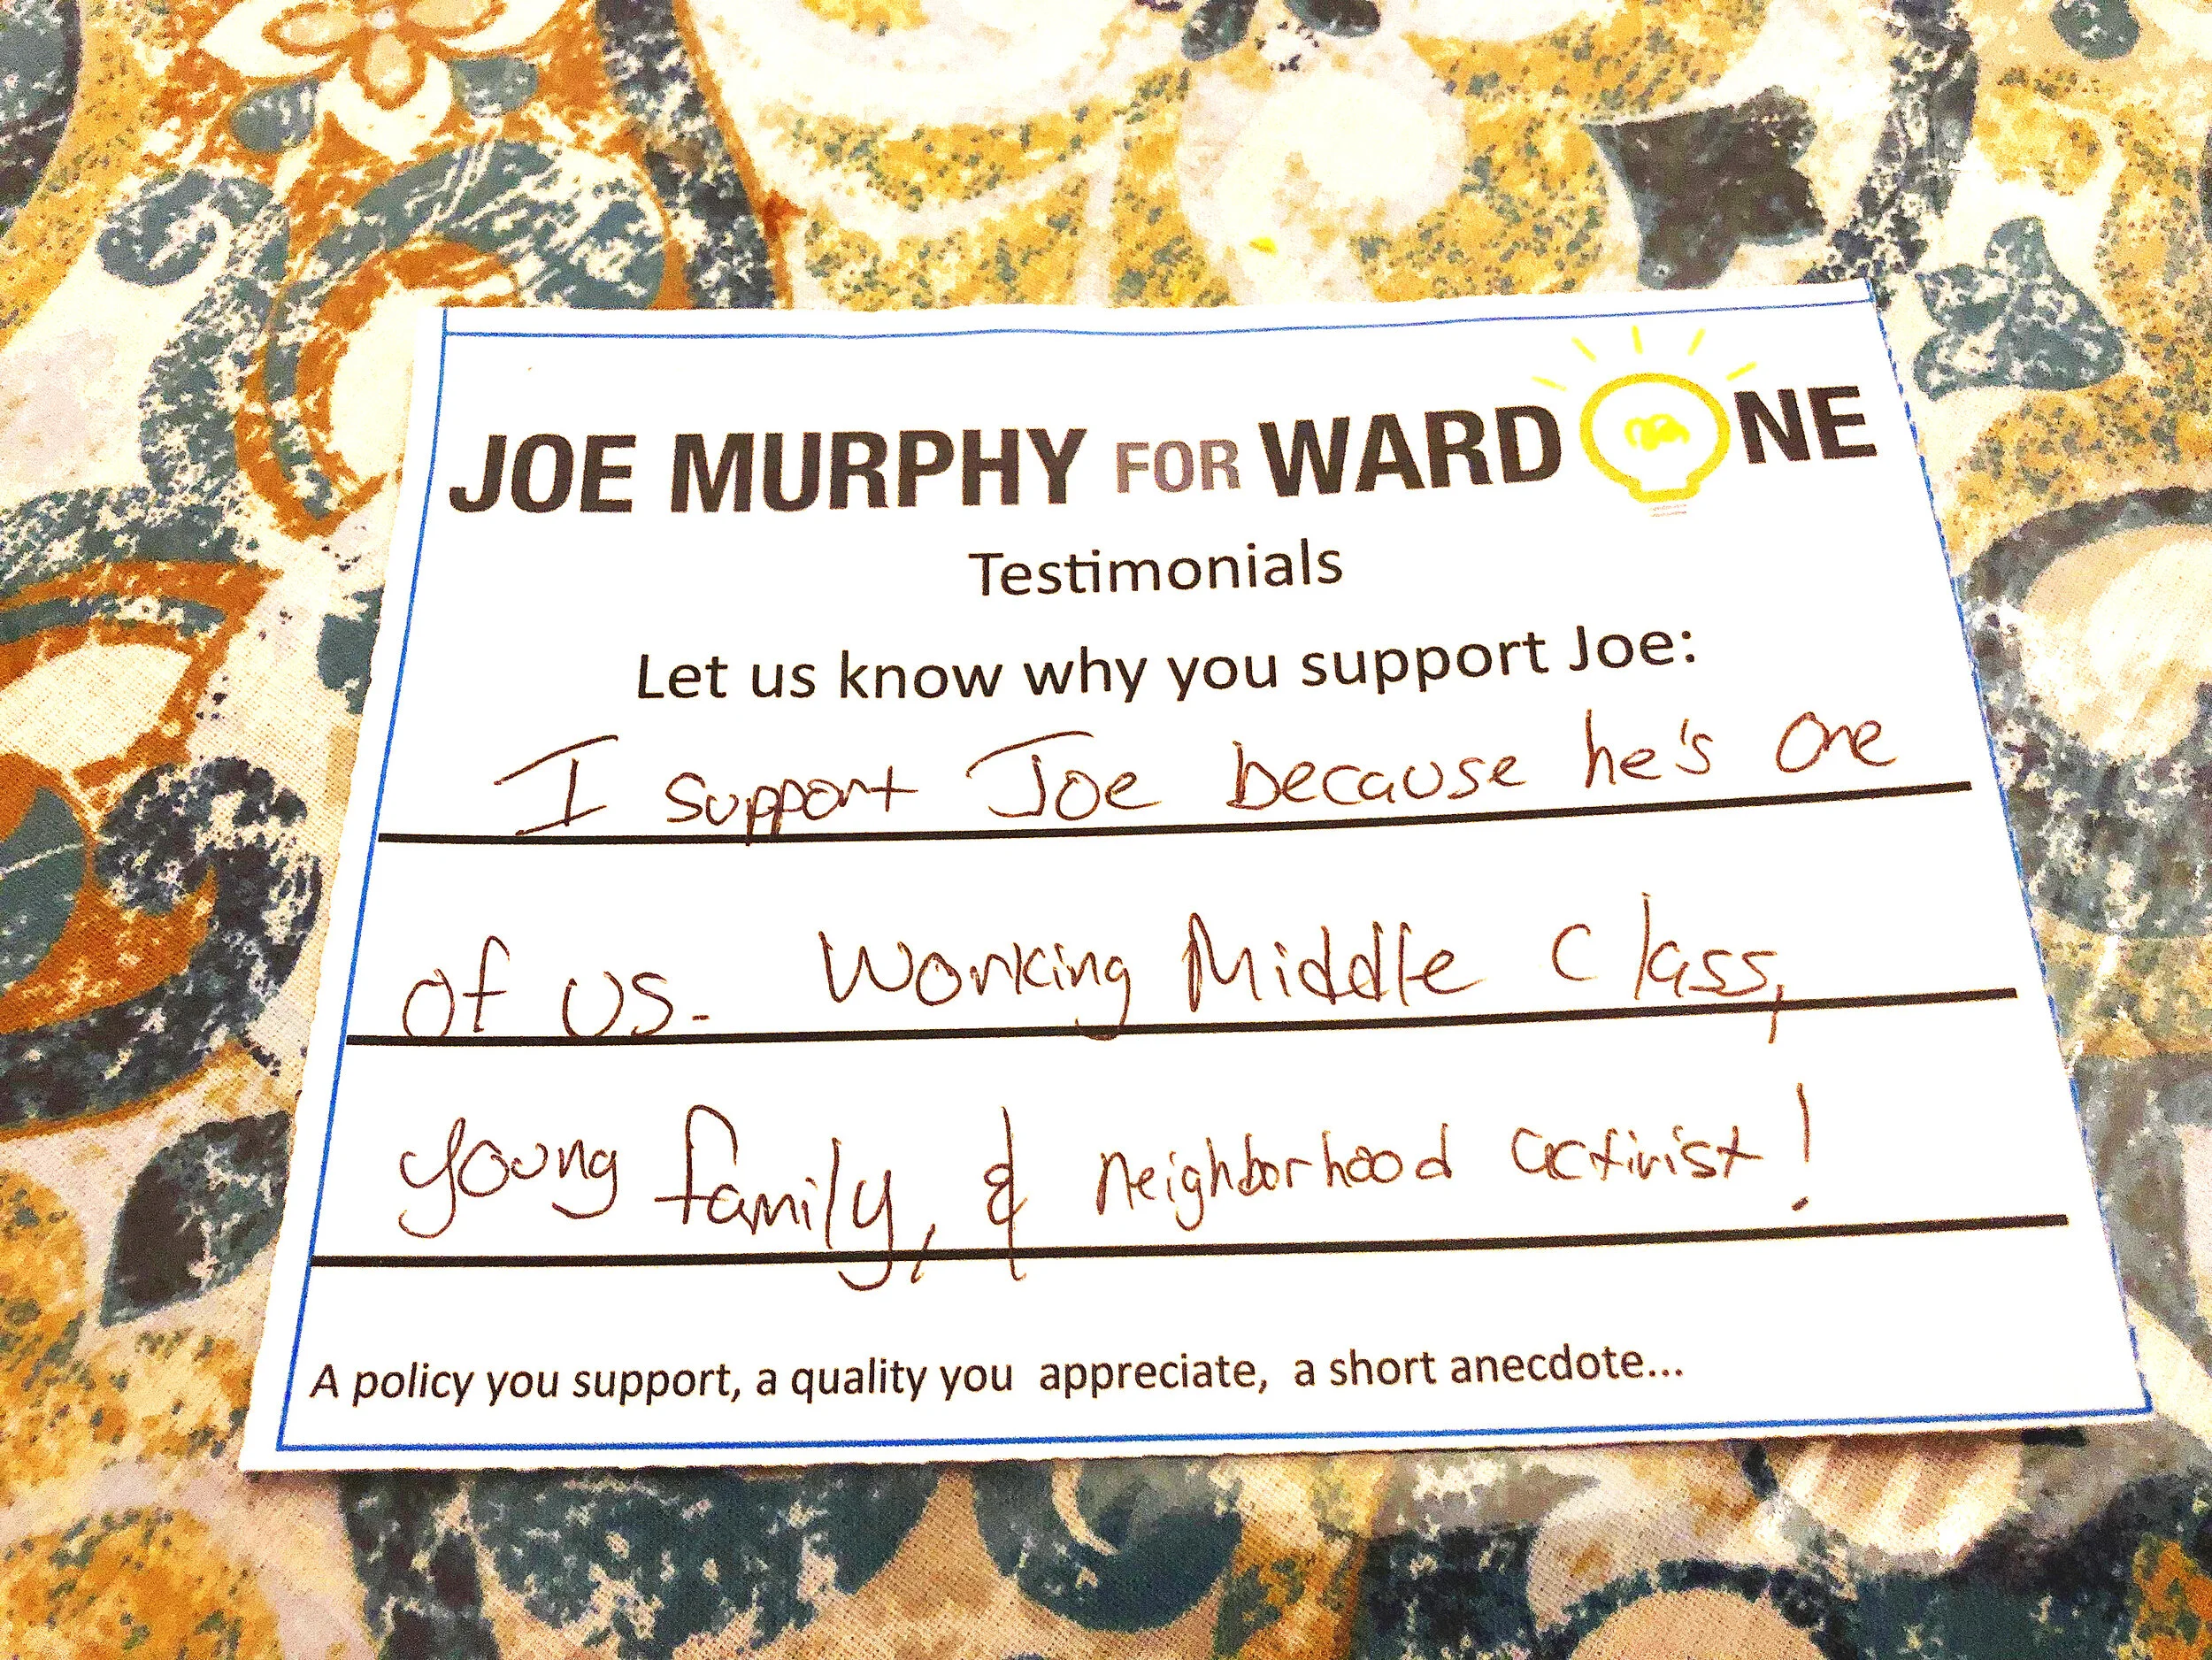 JOE MURPHY FOR WARD ONE
Testimonials
Let us know why you support Joe:
I support Joe because he's one
of us. Working Middle Class,
young family, & neighborhood activist!
A policy you support, a quality you appreciate, a short anecdote...